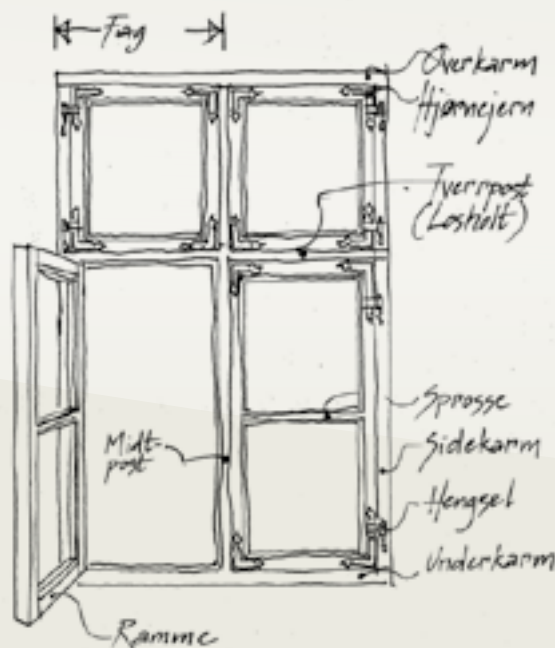 Fag
Overkarm
Hjørnejern
Tverrpost
(Losholt)
Sprosse
Midt-
post
Sidekarm
Hengsel
Underkarm
Ramme